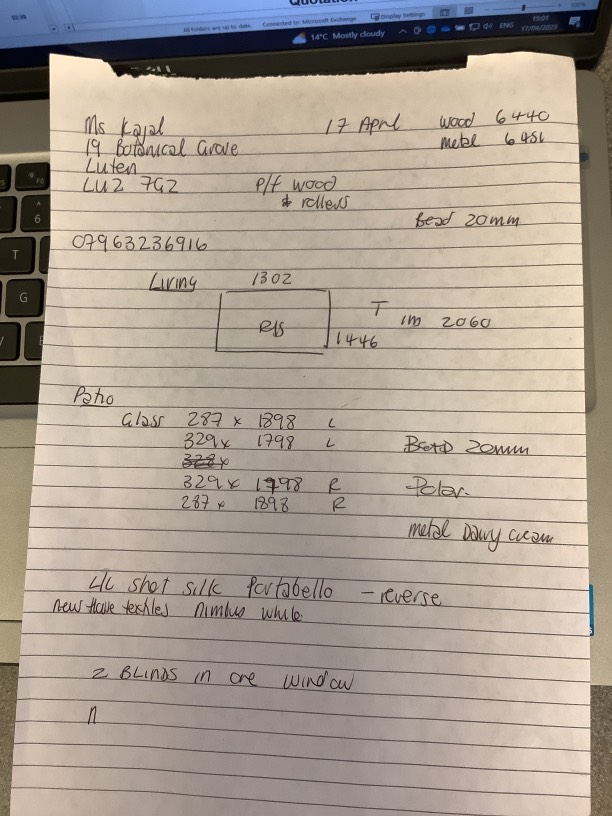 Quotation
All folders are up to date. Connected to: Microsoft Exchange Display Settings
15:01
14°C Mostly cloudy ENG 17/04/2023
DELL
Ms Kajal 17 April wood 6440
19 Botanical Grove metal
Luten
LU2 7GZ P/f wood
& rollers
Bead 20mm
07963236916
Living 1302
T
R/S 1m 2060
1446
Patio
Glass 287 x 1898 L
329 x 1798 L Bead 20mm
328 x
329 x 1798 R Polar.
287 x 1898 R
metal cream
shot silk Portabello - reverse
new textiles nimbus white
2 BLINDS in one window
n
6
T
G